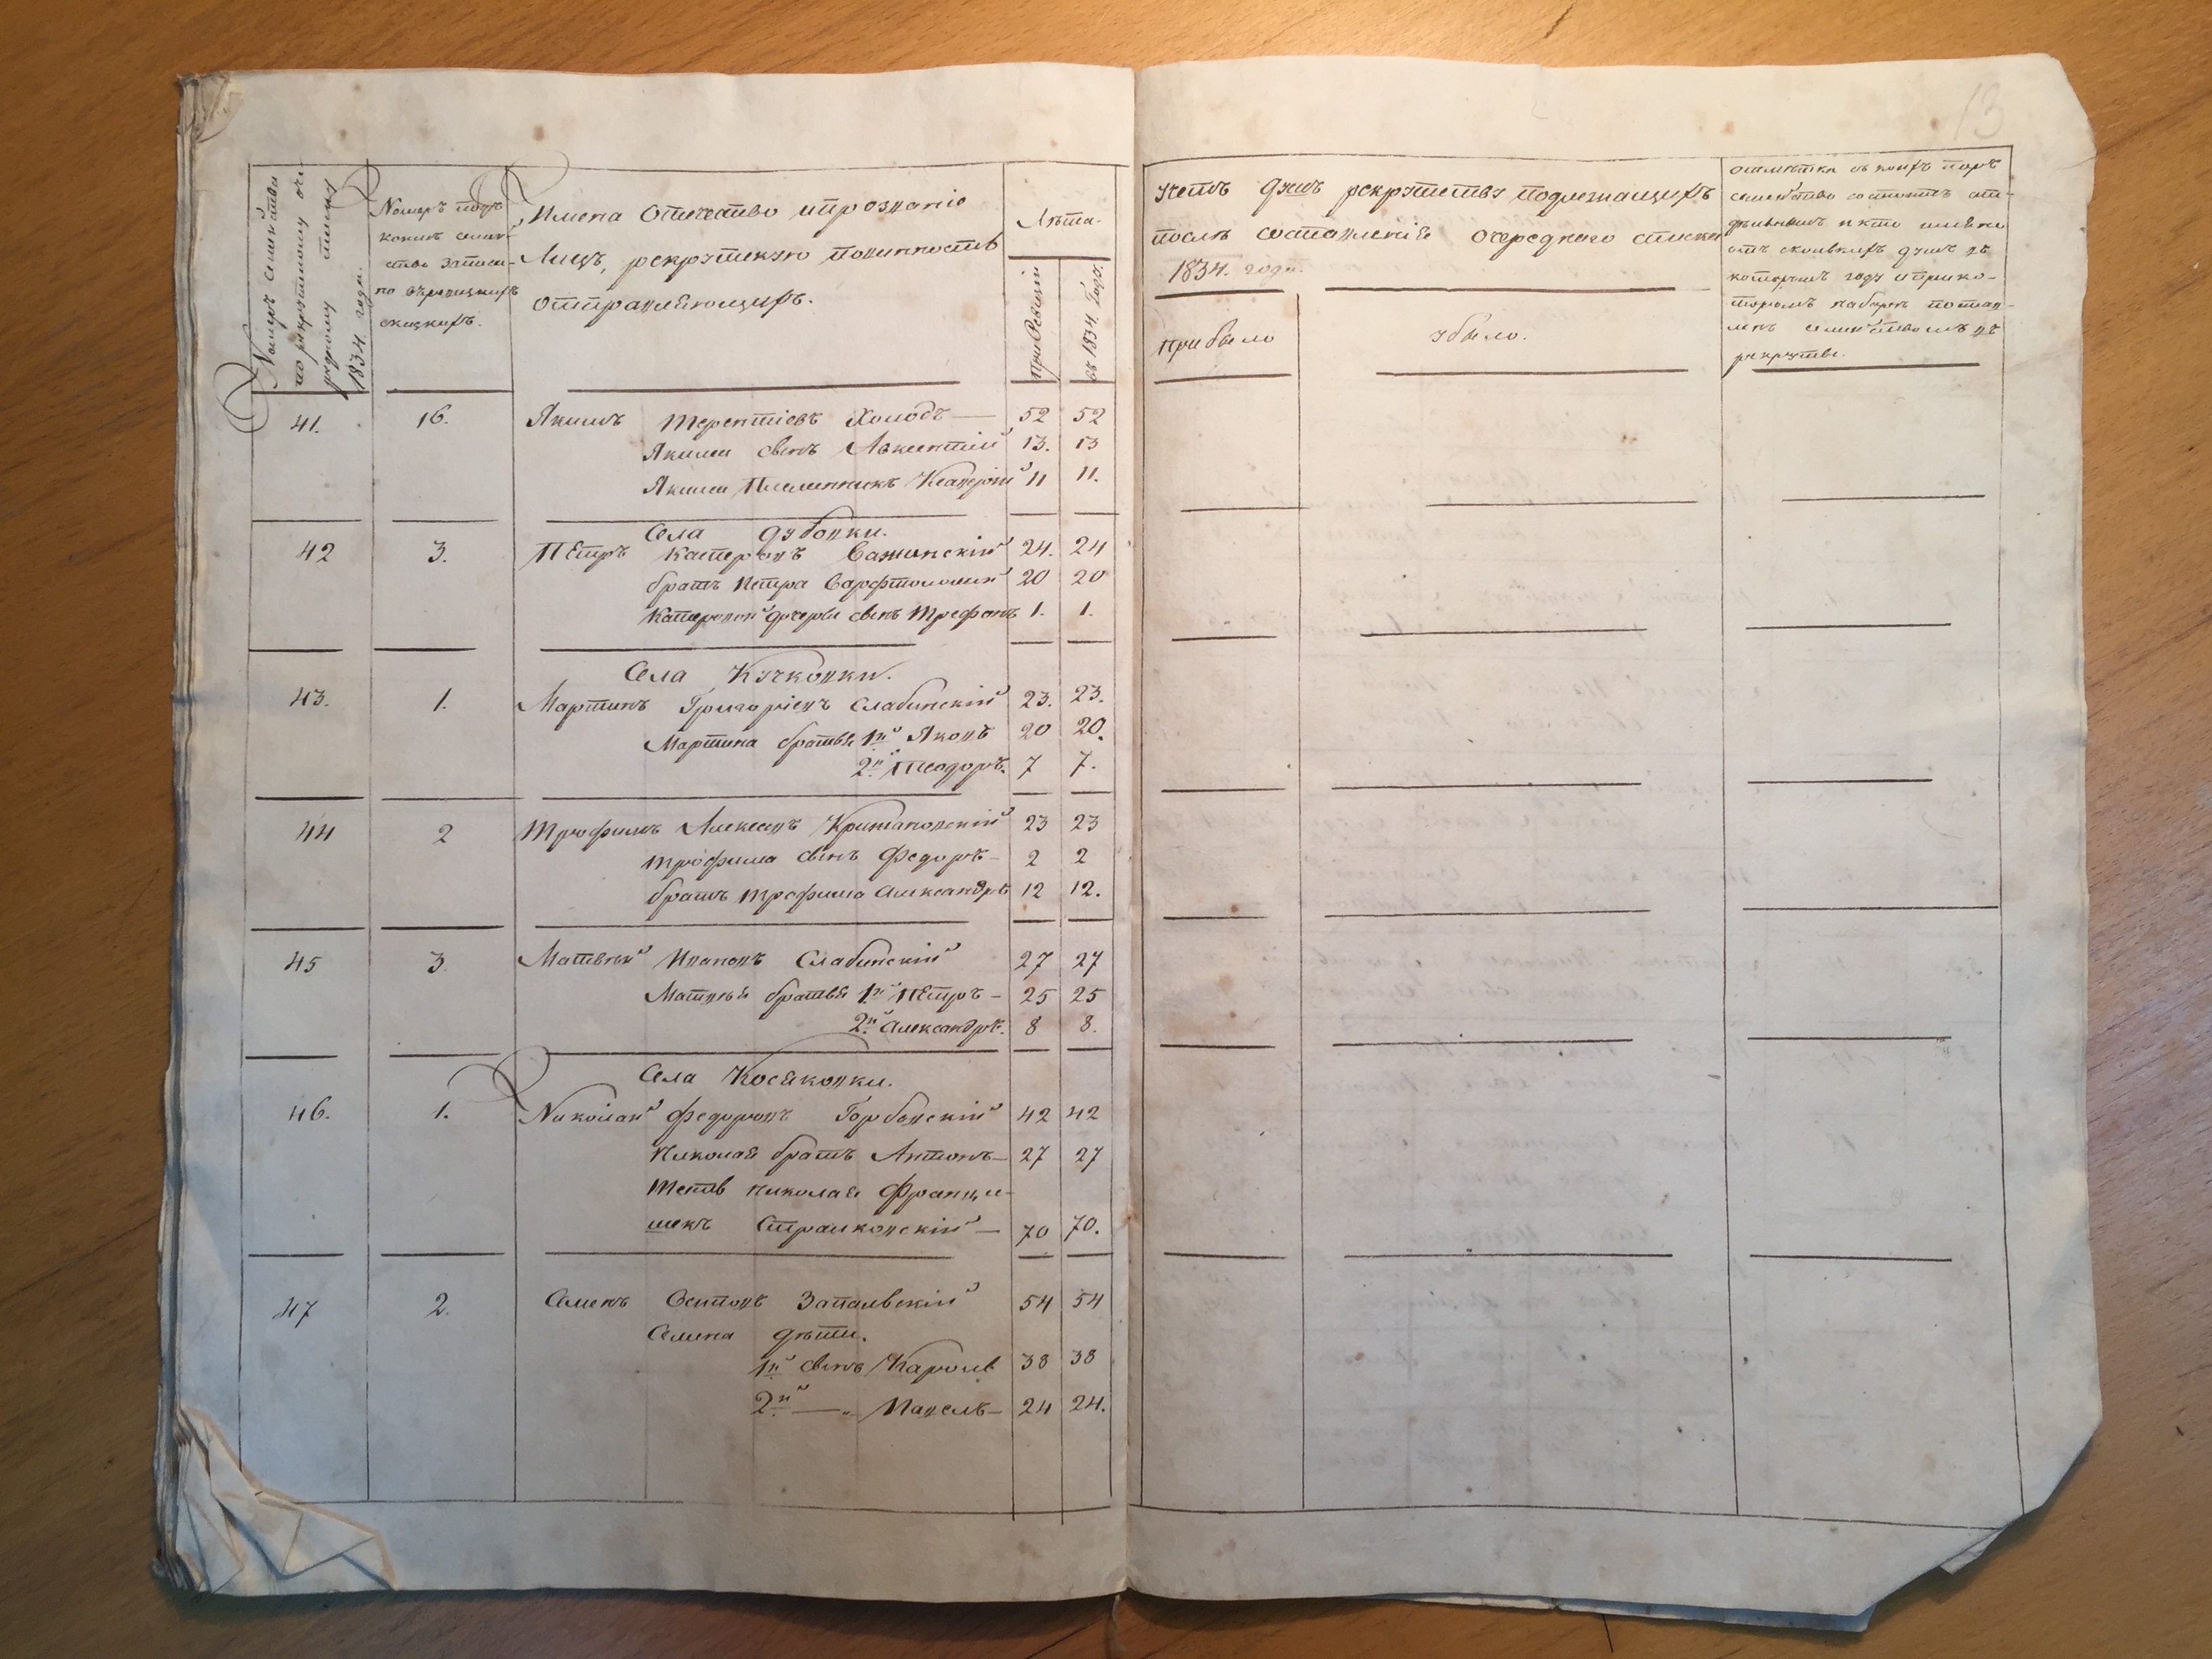 13
Номеръ семейства
по рекрутскому оче-
редному списку
1834. года.
Номеръ подъ
коимъ семей-
ство записа-
но въ ревизскихъ
сказкахъ.
Имена Отечество и прозваніе
Лицъ, рекрутскую повинность
отправляющихъ.
Лѣта.
при Ревизіи
въ 1834. Году.
Учетъ душъ рекрутству подлежащихъ
послѣ составленія очереднаго списка
1834. года.
прибыло
убыло.
семейство состоитъ
которомъ году и при ко-
торомъ наборѣ постав-
семействомъ въ
рекруты.
41. 16. Якимъ Терентіевъ Холодъ — 52 52
Якима сынъ Авксентій 13. 13
Якима Племянникъ 11 11.
Села Дубовки.
42 3. Пётръ Важинскій 24. 24
братъ Петра Варфтоломей 20 20
дочери сынъ Трефонъ 1. 1.
Села Кучковки.
43. 1. Мартинъ Григоріевъ Слабинскій 23. 23.
Мартина братья 1й Яковъ 20 20.
2й Теодоръ. 7 7.
44 2 Трофимъ Алексеевъ Крижановскій 23 23
Трофима сынъ Федоръ — 2 2
братъ Трофима Александръ 12 12.
45 3 Матвѣй Ивановъ Слабинскій 27 27
Матвѣя братья 1й Пётръ — 25 25
2й Александръ. 8 8.
Села Косяковки.
46. 1. Николай Федоровъ Горбовскій 42 42
Николая братъ Антонъ — 27 27
Тесть Николая Францы-
шекъ Страшковскій — 70 70.
47 2. Семенъ Осиповъ Запальскій 54 54
Семена дѣти.
1й сынъ Кароль 38 38
2й — „ Павелъ — 24 24.